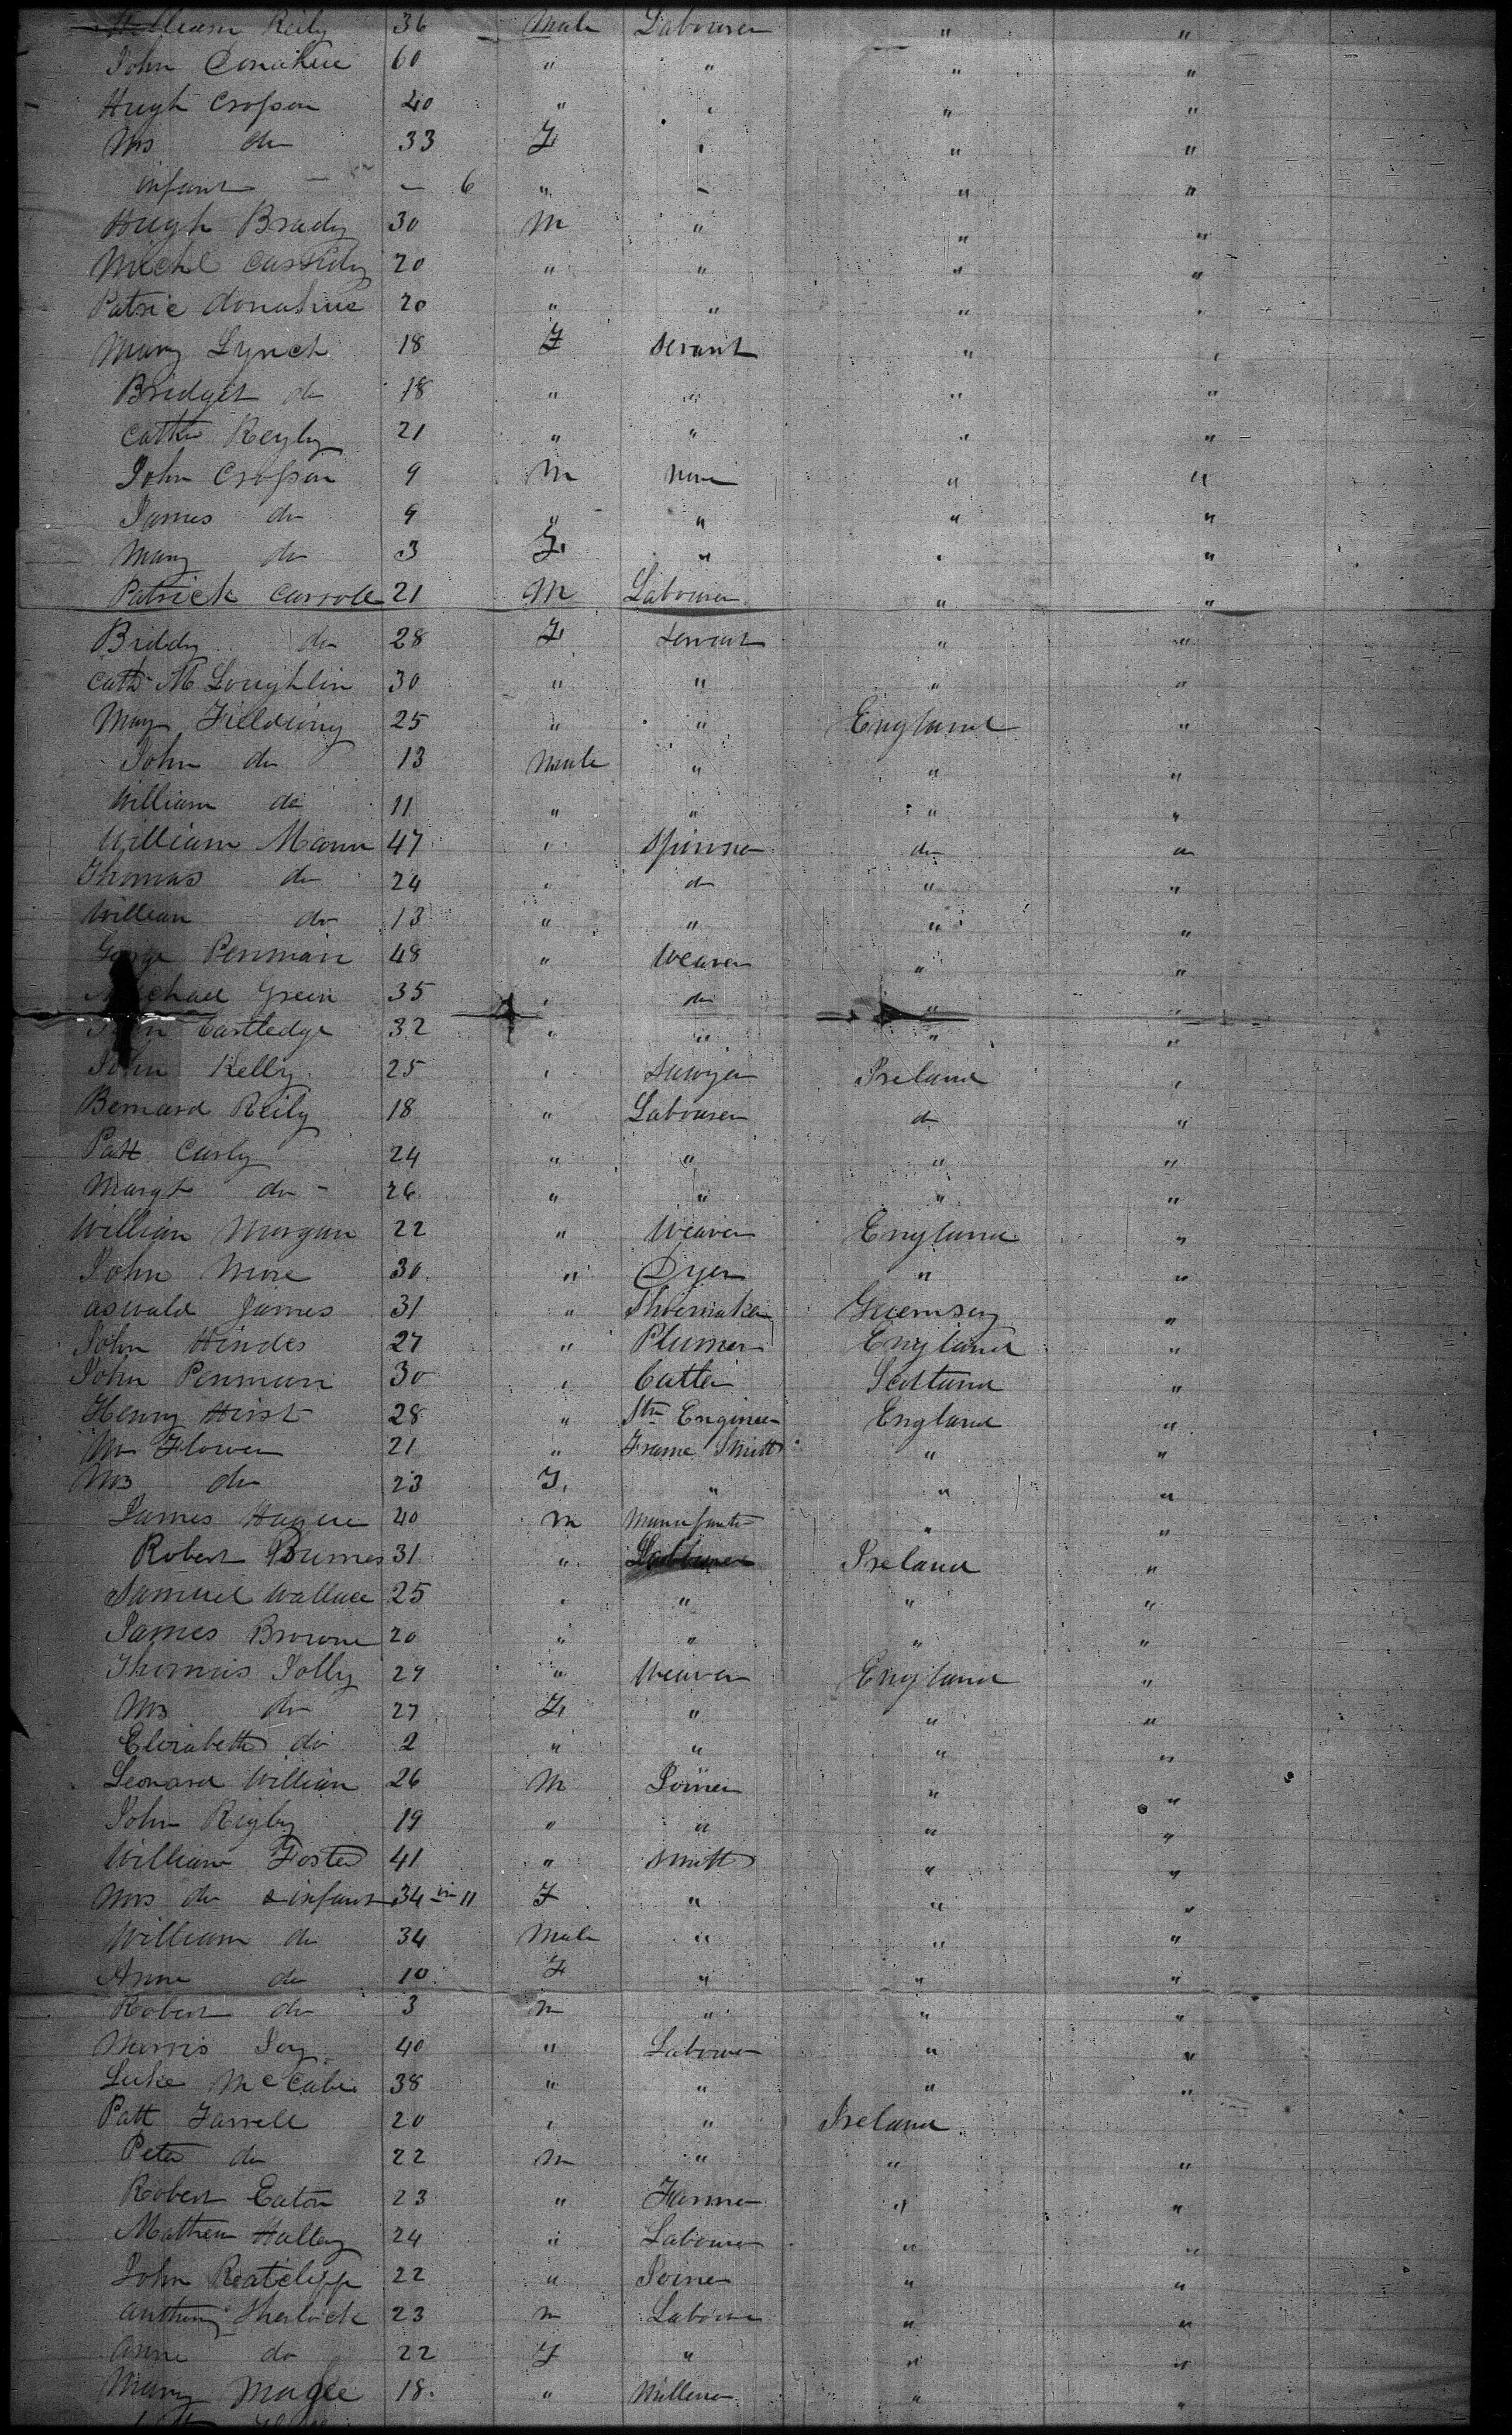 William Reily 36 Male Labourer " "
John Donahue 60 " " " "
Hugh Crosson 40 " " " "
Mrs do 33 F " " "
infant - 6 " - " "
Hugh Brady 30 M " " "
Michl Cassidy 20 " " " "
Patric donahue 20 " " " "
Mary Lynch 18 F servant " "
Bridget do 18 " " " "
Cathe Reyly 21 " " " "
John Crosson 9 M None " "
James do 9 " " " "
Mary do 3 F " " "
Patrick Carrole 21 M Labourer " "
Biddy do 28 F servant " "
Cath McLoughlin 30 " " " "
May Fieldiung 25 " " England "
John do 13 Male " " "
William do 11 " " " "
William Mann 47 " Spinner do do
Thomas do 24 " do " "
William do 13 " " " "
George Penman 48 " Weaver " "
Michael Green 35 " do " "
John Eastledge 32 " " " "
John Kelly 25 " Sawyer Ireland "
Bernard Reily 18 " Labourer do "
Patt Carly 24 " " " "
Margt do - 26 " " " "
William Morgan 22 " Weaver England "
John More 30 " Dyer " "
aswald James 31 " Shoemaker Guernsey "
John Hindes 27 " Plumer England "
John Penman 30 " Cutler Scotland "
Henry Hirst 28 " Stm Engineer England "
Mr Flower 21 " Frame Smith " "
Mrs do 23 F. " " "
James Hague 40 M Manufactr " "
Robert Burnes 31 " Labourer Ireland "
Samuel Wallace 25 " " " "
James Browne 20 " " " "
Thomas Jolly 27 " Weaver England "
Mrs do 27 F " " "
Elizabeth do 2 " " " "
Leonard William 26 M Joiner " "
John Rigby 19 " " " "
William Foster 41 " Smith " "
Mrs do & infant 34 in 11 F " " "
William do 34 Male " " "
Anne do 10 F " " "
Robert do 3 m " " "
Morris Joy 40 " Labourer " "
Luke McCabe 38 " " " "
Patt Farrell 20 " " Ireland "
Peter do 22 m " " "
Robert Eaton 23 " Farmer " "
Mathew Halley 24 " Labourer " "
John Ratcliff 22 " Joiner " "
Anthony Sherlock 23 m Labourer " "
Anne do 22 F " " "
Mary Magee 18. " Milliner " "